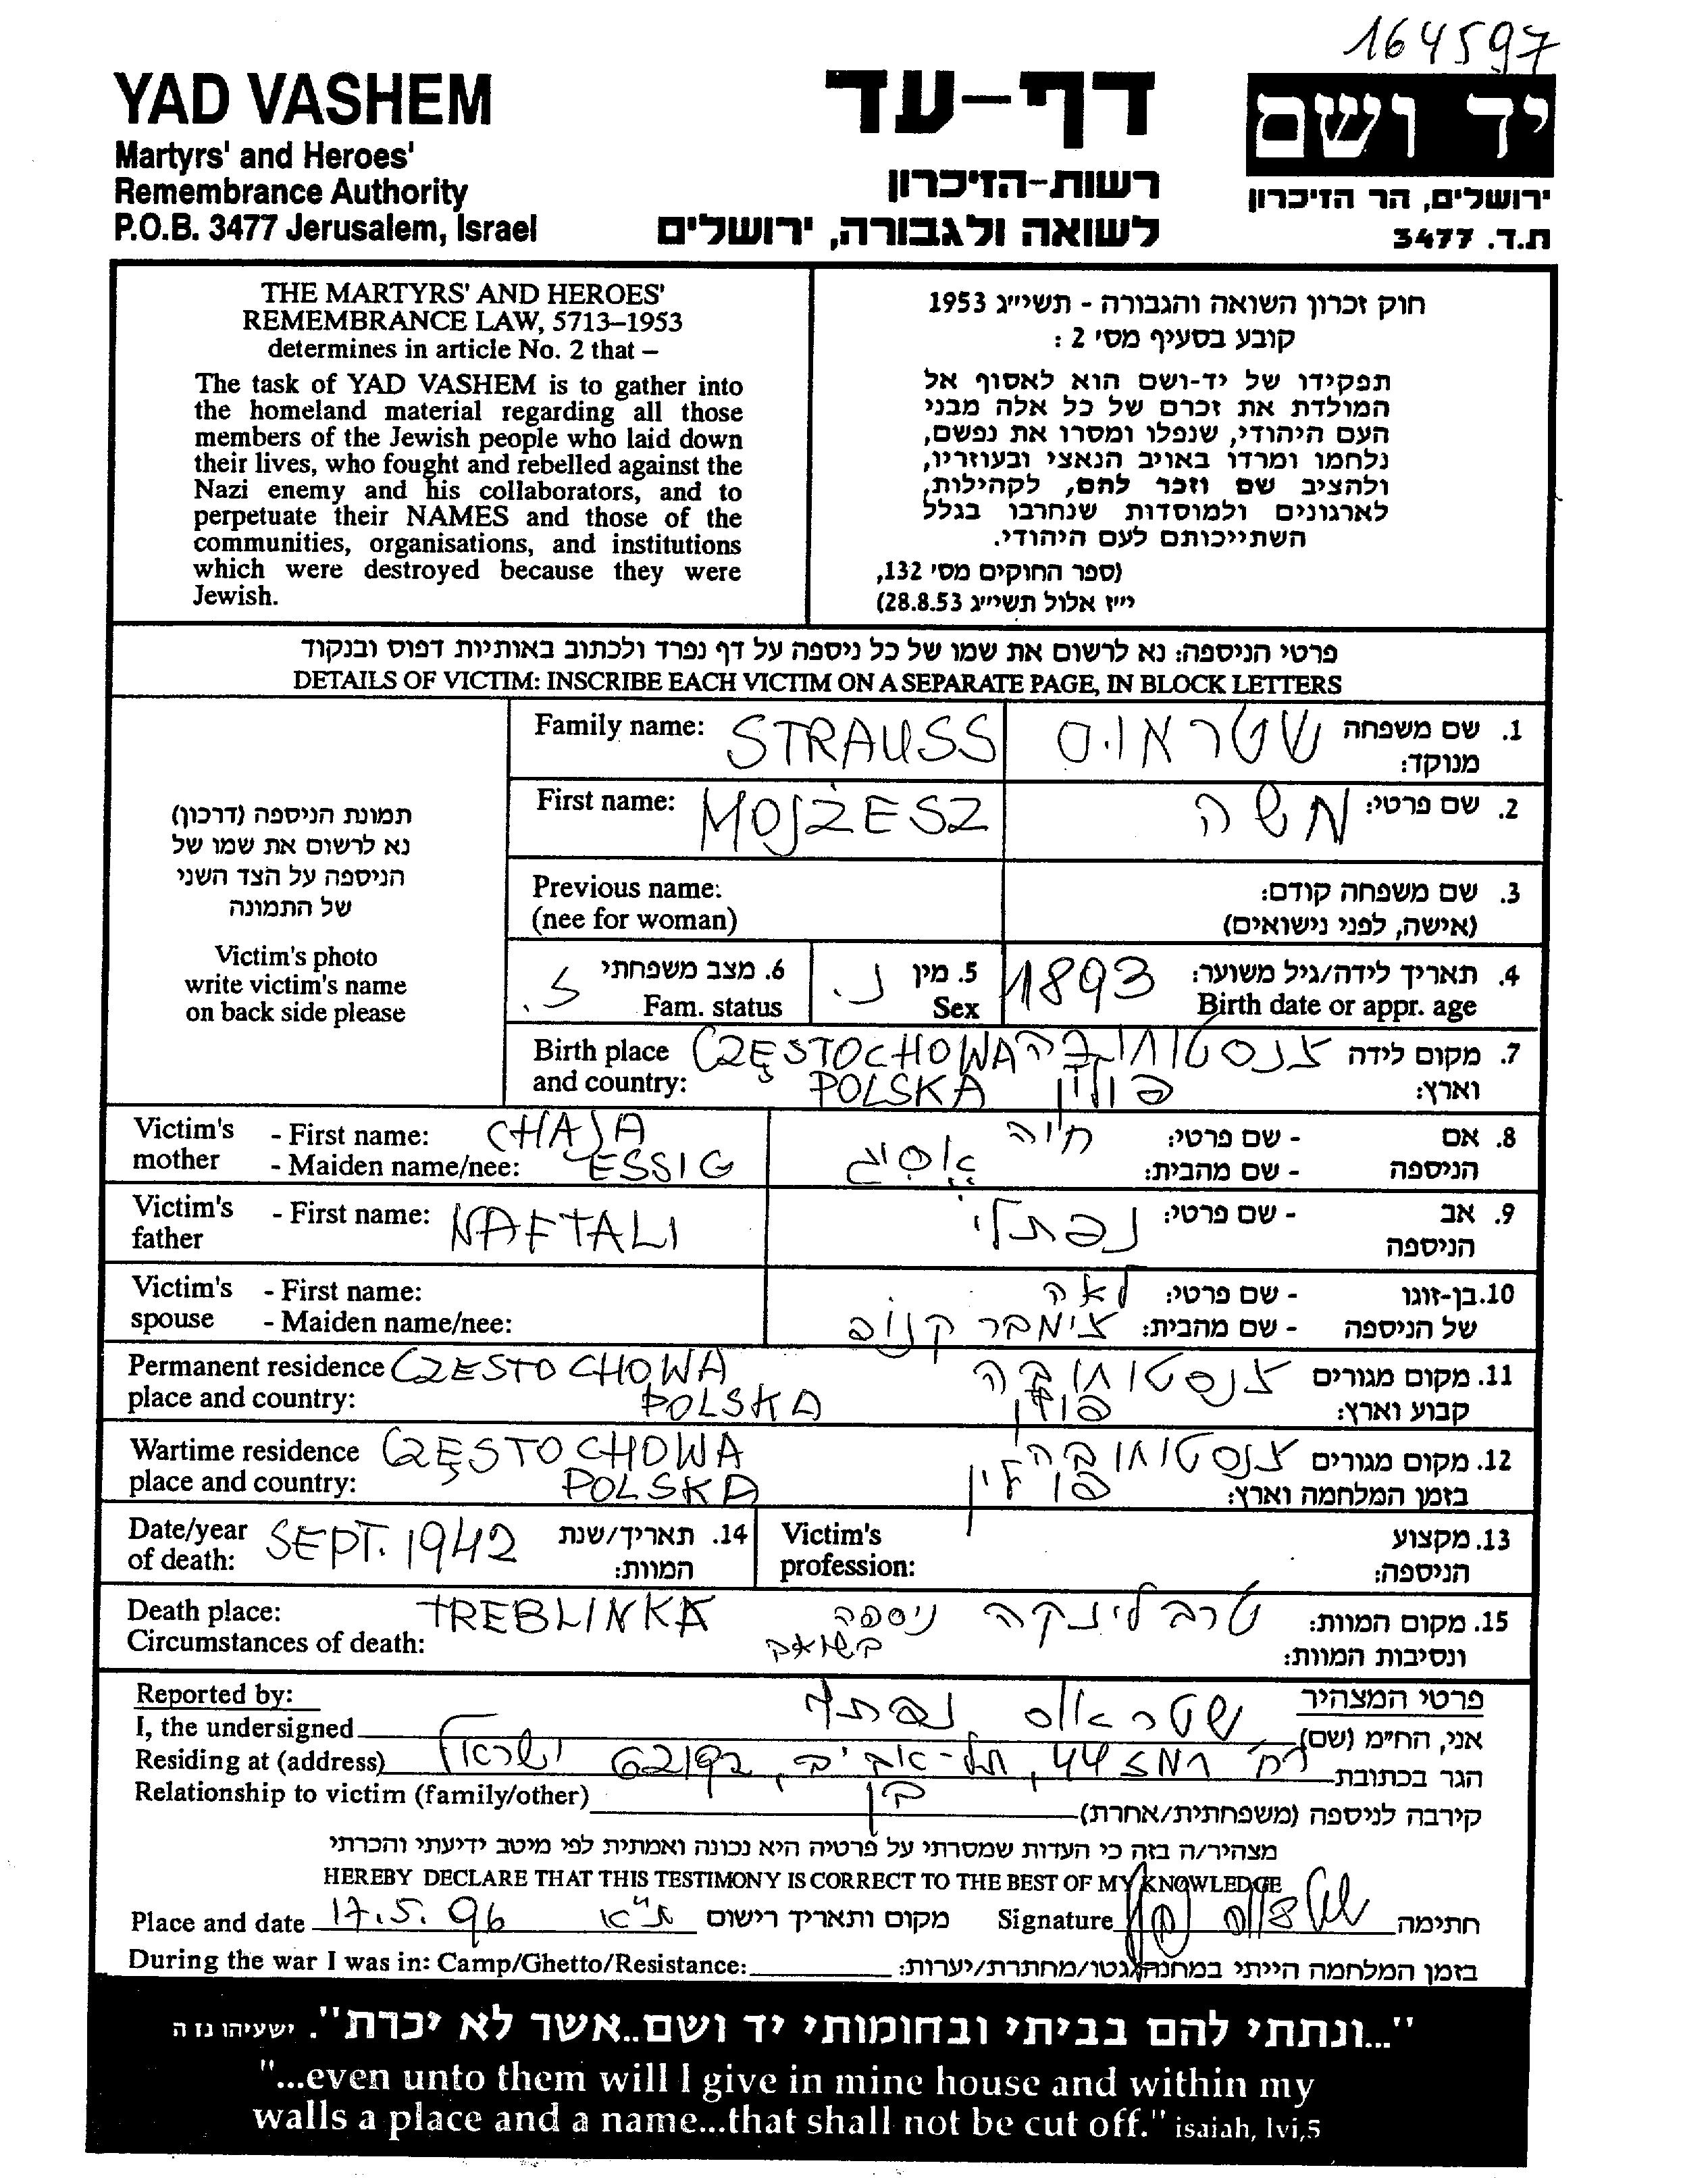 164597
YAD VASHEM
Martyrs' and Heroes'
Remembrance Authority
P.O.B. 3477 Jerusalem, Israel
דף-עד
רשות-הזיכרון
לשואה ולגבורה, ירושלים
יד ושם
ירושלים, הר הזיכרון
ת.ד. 3477
THE MARTYRS' AND HEROES'
REMEMBRANCE LAW, 5713–1953
determines in article No. 2 that –
The task of YAD VASHEM is to gather into
the homeland material regarding all those
members of the Jewish people who laid down
their lives, who fought and rebelled against the
Nazi enemy and his collaborators, and to
perpetuate their NAMES and those of the
communities, organisations, and institutions
which were destroyed because they were
Jewish.
חוק זכרון השואה והגבורה - תשי״ג 1953
קובע בסעיף מס׳ 2 :
תפקידו של יד-ושם הוא לאסוף אל
המולדת את זכרם של כל אלה מבני
העם היהודי, שנפלו ומסרו את נפשם,
נלחמו ומרדו באויב הנאצי ובעוזריו,
ולהציב שם וזכר להם, לקהילות,
לארגונים ולמוסדות שנחרבו בגלל
השתייכותם לעם היהודי.
(ספר החוקים מס׳ 132,
י״ז אלול תשי״ג 28.8.53)
פרטי הניספה: נא לרשום את שמו של כל ניספה על דף נפרד ולכתוב באותיות דפוס ובנקוד
DETAILS OF VICTIM: INSCRIBE EACH VICTIM ON A SEPARATE PAGE, IN BLOCK LETTERS
תמונת הניספה (דרכון)
נא לרשום את שמו של
הניספה על הצד השני
של התמונה
Victim's photo
write victim's name
on back side please
Family name: STRAUSS
1. שם משפחה מנוקד: שטראוס
First name: MOJŻESZ
2. שם פרטי: משה
Previous name:
(nee for woman)
3. שם משפחה קודם:
(אישה, לפני נישואים)
4. תאריך לידה/גיל משוער: 1893
Birth date or appr. age
5. מין ז.
Sex
6. מצב משפחתי
Fam. status
Birth place CZĘSTOCHOWA
and country: POLSKA
7. מקום לידה צנסטוחובה
וארץ: פולין
Victim's mother - First name: CHAJA
- Maiden name/nee: ESSIG
8. אם הניספה - שם פרטי: חיה
- שם מהבית: אסיג
Victim's father - First name: NAFTALI
9. אב הניספה - שם פרטי: נפתלי
Victim's spouse - First name:
- Maiden name/nee:
10. בן-זוגו של הניספה - שם פרטי: לאה
- שם מהבית: צימבר קנופ
Permanent residence CZESTOCHOWA
place and country: POLSKA
11. מקום מגורים צנסטוחובה
קבוע וארץ: פולין
Wartime residence CZĘSTOCHOWA
place and country: POLSKA
12. מקום מגורים צנסטוחובה
בזמן המלחמה וארץ: פולין
Date/year of death: SEPT. 1942
14. תאריך/שנת המוות:
Victim's profession:
13. מקצוע הניספה:
Death place: TREBLINKA
Circumstances of death:
15. מקום המוות: טרבלינקה ניספה
ונסיבות המוות: בשואה
Reported by:
פרטי המצהיר
I, the undersigned שטראוס נפתלי אני, הח״מ (שם)
Residing at (address) רח׳ רמז 44, תל-אביב, 62192 ישראל הגר בכתובת
Relationship to victim (family/other) בן קירבה לניספה (משפחתית/אחרת)
מצהיר/ה בזה כי העדות שמסרתי על פרטיה היא נכונה ואמתית לפי מיטב ידיעתי והכרתי
HEREBY DECLARE THAT THIS TESTIMONY IS CORRECT TO THE BEST OF MY KNOWLEDGE
Place and date 17.5.96 ת״א מקום ותאריך רישום Signature חתימה
During the war I was in: Camp/Ghetto/Resistance: בזמן המלחמה הייתי במחנה/גטו/מחתרת/יערות:
"...ונתתי להם בביתי ובחומותי יד ושם..אשר לא יכרת". ישעיהו נז ה
"...even unto them will I give in mine house and within my
walls a place and a name...that shall not be cut off." isaiah, lvi,5